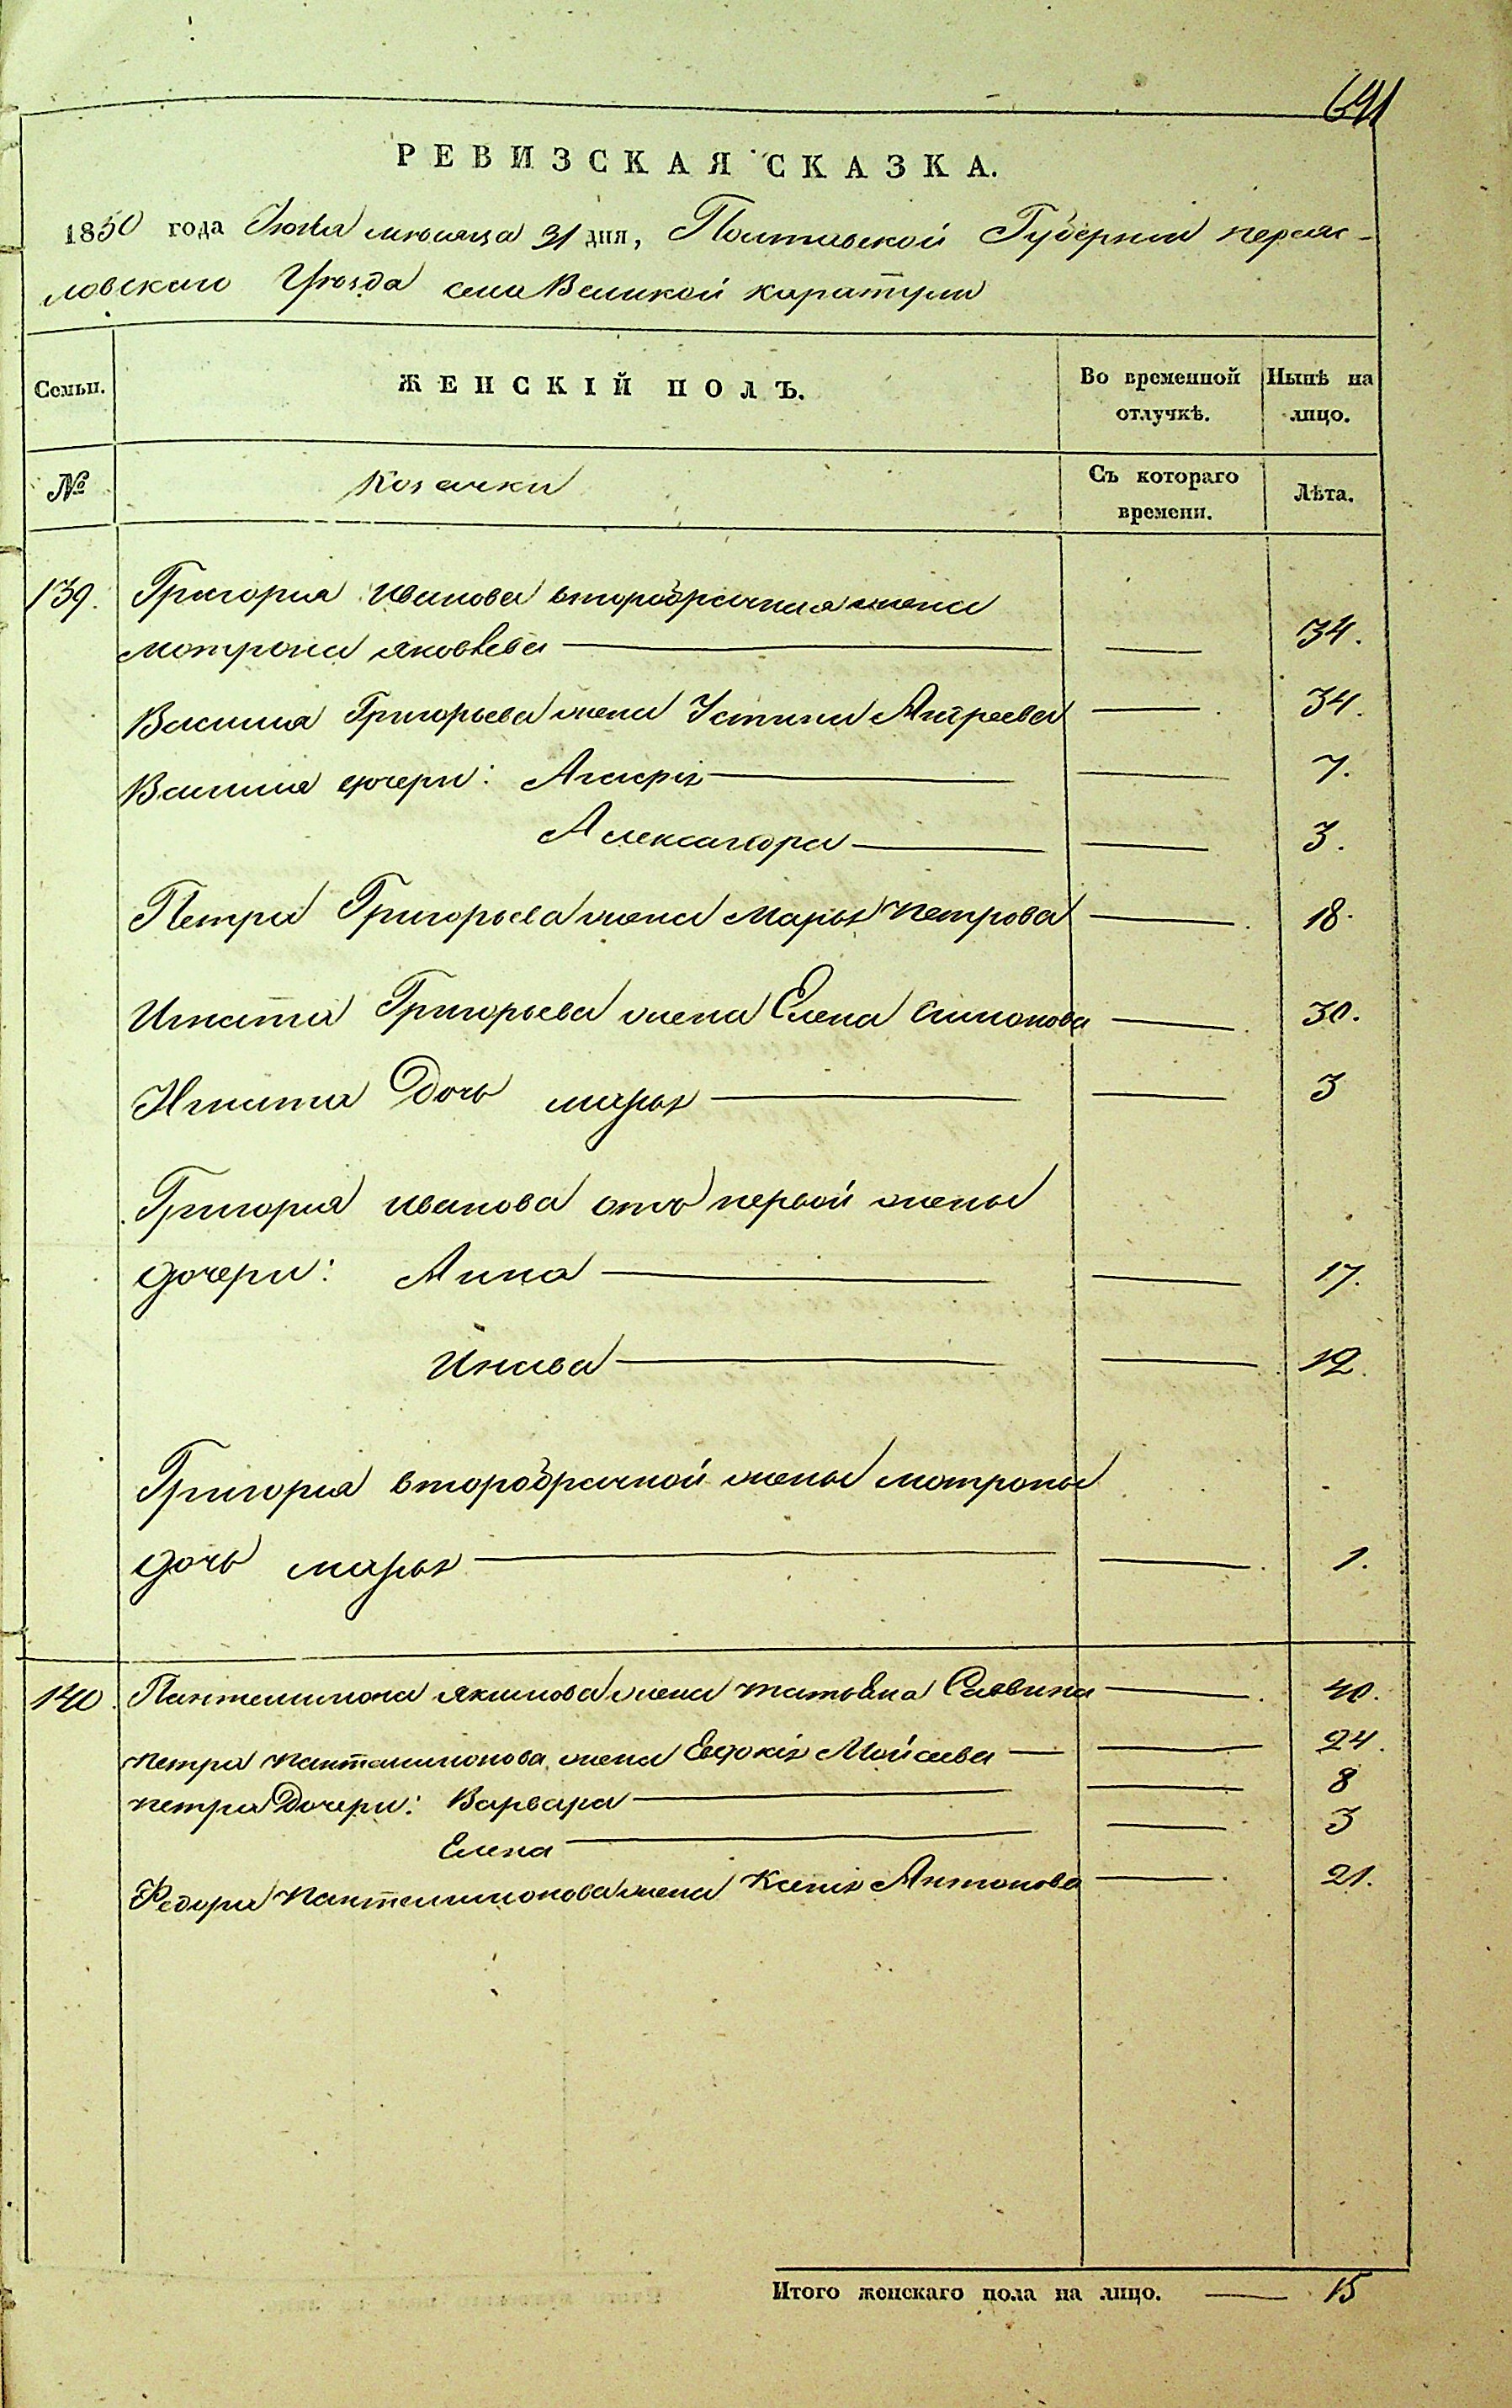 641
РЕВИЗСКАЯ СКАЗКА.
1850 года Июля мѣсяца 31 дня, Полтавской Губерніи переяс-
ловского Уѣзда села Великой каратули
Семьи. ЖЕНСКІЙ ПОЛЪ. Во временной отлучкѣ. Нынѣ на лицо.
№ Козачки Съ котораго времени. Лѣта.
139. Григорія Иванова второбрачная жена
мотрона яковлева — — 34.
Василія Григорьева жена Устинья Андреева — 34.
Василія дочери: — — 7.
Александра — — 3.
Петра Григорьева жена Марья петрова — 18.
Игната Григорьева жена Елена Симонова — 30.
Игната Дочь марья — — 3
Григорія иванова отъ первой жены
дочери: Анна — — 17.
— — 12.
Григорія второбрачной жены мотроны
дочь марья — — 1.
140. Пантелимона якимова жена татьяна Саввина — 40.
петра пантелимонова жена Евдокія Мойсеева — — 24.
петра Дочери: Варвара — — 8
Елена — — 3
Федора пантелимонова жена Ксенія Антонова — 21.
Итого женскаго пола на лицо. — 15